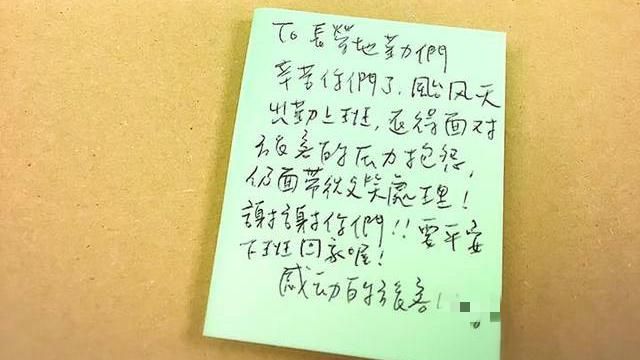 To 長榮地勤們
辛苦你們了，颱风天
出勤上班，还得面对
旅客的压力抱怨，
仍面帶微笑處理！
謝謝你們！！要平安
下班回家喔！
感动的旅客